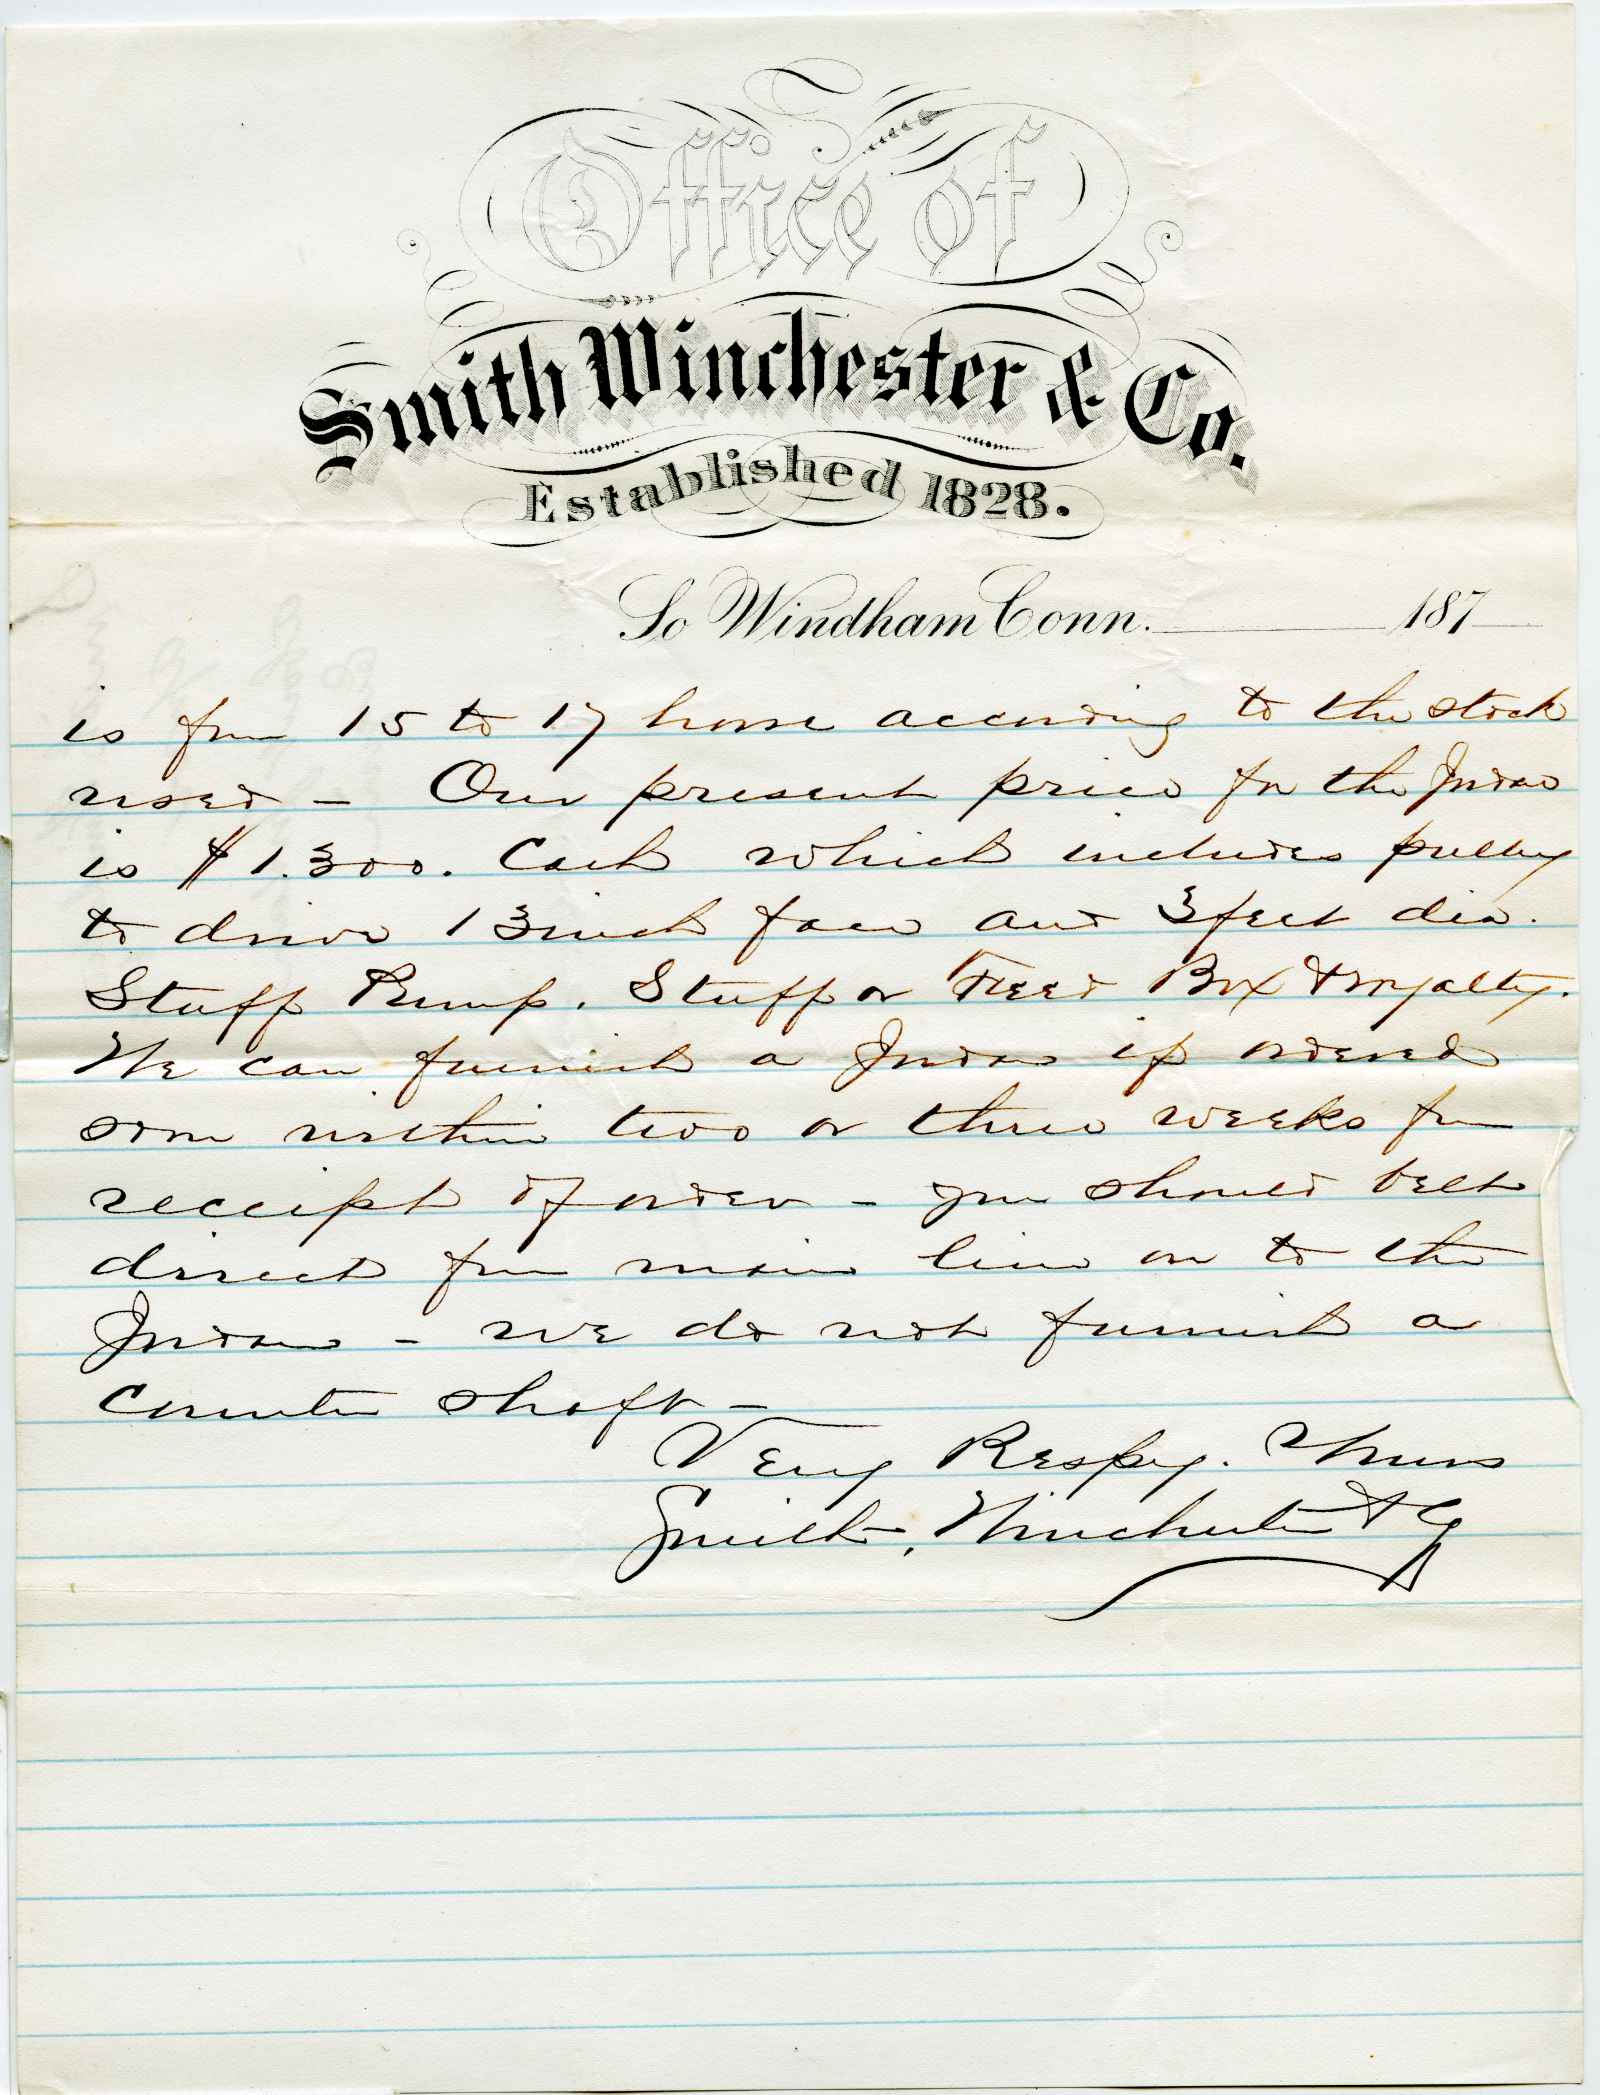 Office of
Smith Winchester & Co.
Established 1828.
So Windham Conn. 187
is from 15 to 17 horse according to the stock
used - Our present price for the Jordan
is $1.300. Cash which includes pulley
to drive 13 inch face and 3 feet dia.
Stuff Pump. Stuff or Feed Box & royalty.
We can furnish a Jordan if ordered
soon within two or three weeks from
receipt of order - you should belt
direct from main line on to the
Jordan - we do not furnish a
counter shaft -
Very Respy. Yours
Smith, Winchester & Co